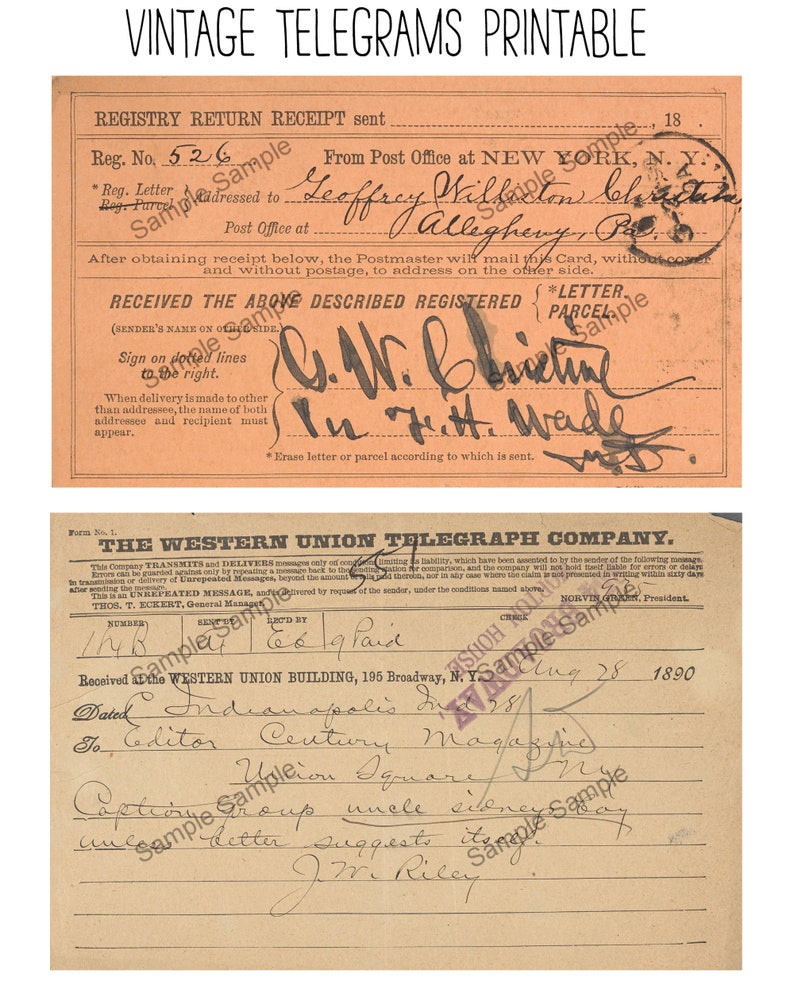 VINTAGE TELEGRAMS PRINTABLE
REGISTRY RETURN RECEIPT sent , 18 .
Reg. No. 526 From Post Office at NEW YORK, N. Y.
*Reg. Letter
Reg. Parcel
Addressed to Geoffrey Williston Christine
Post Office at Allegheny, Pa.
After obtaining receipt below, the Postmaster will mail this Card, without cover
and without postage, to address on the other side.
RECEIVED THE ABOVE DESCRIBED REGISTERED { *LETTER.
PARCEL.
(SENDER'S NAME ON OTHER SIDE.)
Sign on dotted lines
to the right.
G. W. Christine
When delivery is made to other
than addressee, the name of both
addressee and recipient must
appear.
F. H. Wade
*Erase letter or parcel according to which is sent.
Sample Sample
Sample Sample
Sample Sample
Sample Sample
Form No. 1.
THE WESTERN UNION TELEGRAPH COMPANY.
This Company TRANSMITS and DELIVERS messages only on conditions limiting its liability, which have been assented to by the sender of the following message.
Errors can be guarded against only by repeating a message back to the sending station for comparison, and the company will not hold itself liable for errors or delays
in transmission or delivery of Unrepeated Messages, beyond the amount of tolls paid thereon, nor in any case where the claim is not presented in writing within sixty days
after sending the message.
This is an UNREPEATED MESSAGE, and is delivered by request of the sender, under the conditions named above.
THOS. T. ECKERT, General Manager. NORVIN GREEN, President.
NUMBER SENT BY REC'D BY CHECK
9 Paid
Received at the WESTERN UNION BUILDING, 195 Broadway, N. Y. Aug 28 1890
Dated Indianapolis Ind 28
To Editor Century Magazine
Union Square NY
Caption Group uncle sidneys boy
unless better suggests itself.
J. W. Riley
HOUSE
Sample Sample
Sample Sample
Sample Sample
Sample Sample